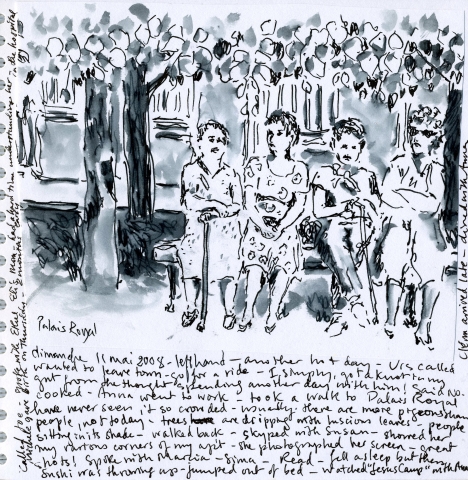 Palais Royal
dimanche 11 mai 2008 - left hand - another hot day - Urs called
wanted to leave town - go for a ride - I simply got a knot in my
gut from the thought of spending another day with him! Said no.
cooked - Anna went to work - took a walk to Palais Royal
have never seen it so crowded - usually there are more pigeons than
people, not today - trees are dripping with luscious leaves - people
sitting in its shade - walked back - skyped with Susan - showed her
my various corners of my apt - she photographed her screen - great
shots! Spoke with Marcia - Sima - Read - fell asleep but then
Sushi was throwing up - jumped out of bed - watched "Jesus Camp" with Anna
called Yona - spoke with Ethel
in the hospital
gave birth on Thursday
Clem arrived late